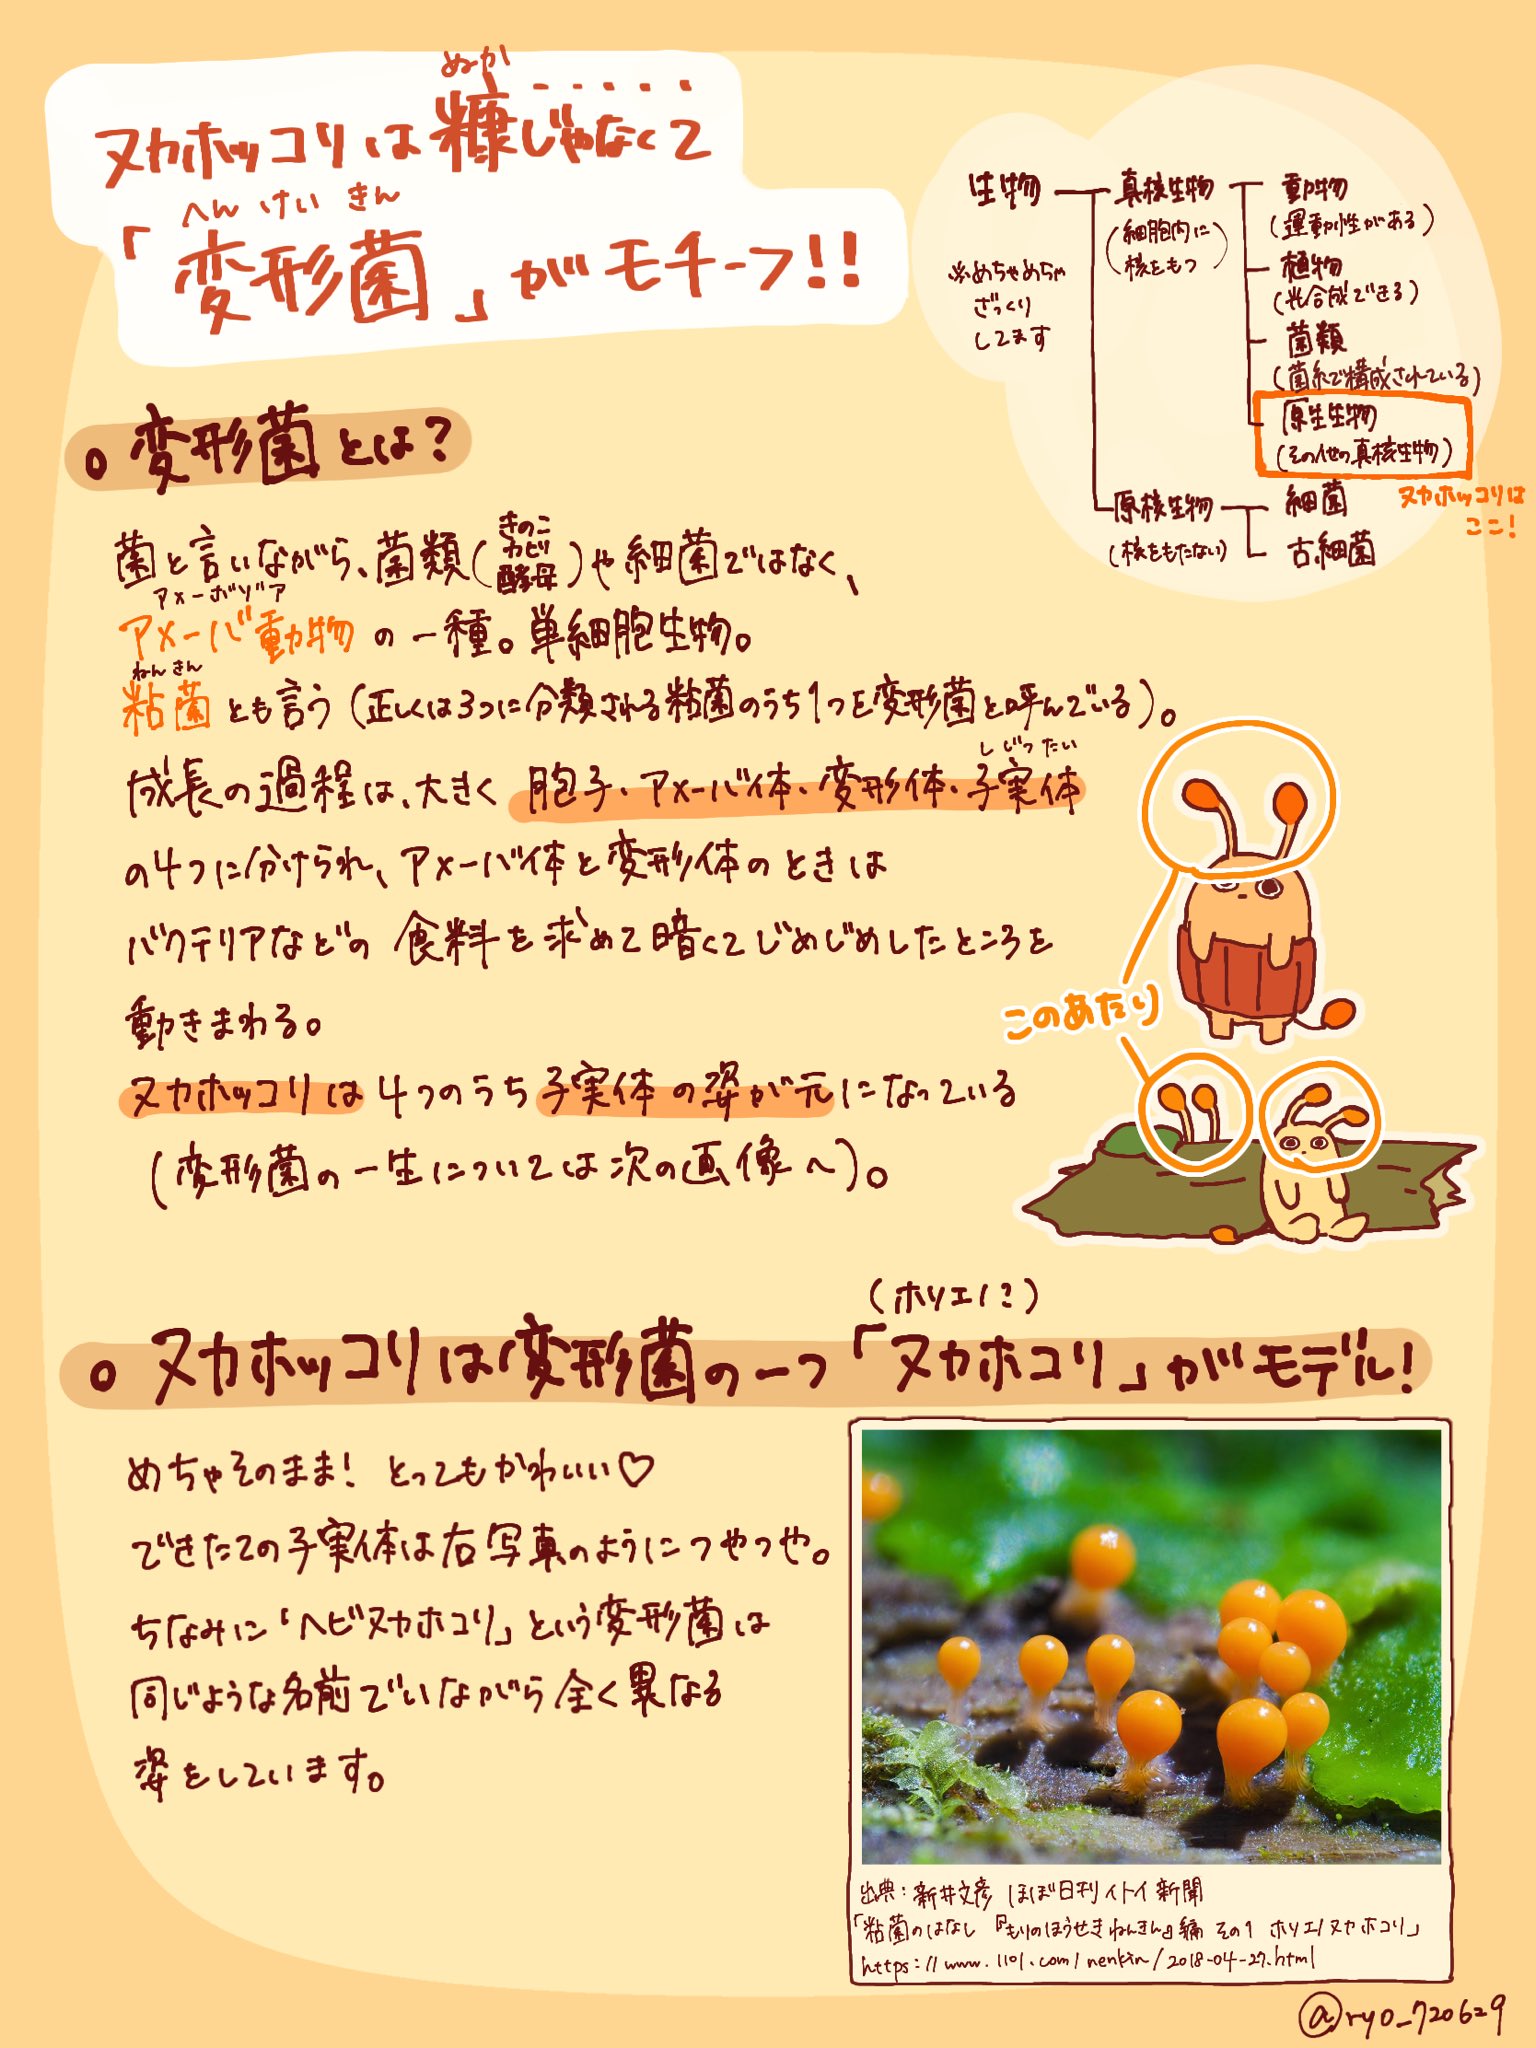 ぬか
ヌカホッコリは糠じゃなくて
へんけいきん
「変形菌」がモチーフ!!
生物
真核生物
(細胞内に
核をもつ)
動物
(運動性がある)
植物
(光合成できる)
菌類
(菌糸で構成されている)
原生生物
(その他の真核生物)
ヌカホッコリは
ここ!
原核生物
(核をもたない)
細菌
古細菌
※めちゃめちゃ
ざっくり
してます
○変形菌とは?
菌と言いながら、菌類(きのこ カビ 酵母)や細菌ではなく、
アメーボゾア
アメーバ動物の一種。単細胞生物。
ねんきん
粘菌とも言う(正しくは3つに分類される粘菌のうち1つを変形菌と呼んでいる)。
しじったい
成長の過程は、大きく胞子・アメーバ体・変形体・子実体
の4つに分けられ、アメーバ体と変形体のときは
バクテリアなどの食料を求めて暗くてじめじめしたところを
動きまわる。
ヌカホッコリは4つのうち子実体の姿が元になっている
(変形菌の一生については次の画像へ)。
このあたり
(ホリエノこ)
○ヌカホッコリは変形菌の一つ「ヌカホコリ」がモデル!
めちゃそのまま! とってもかわいい♡
できたての子実体は右写真のようにつやつや。
ちなみに「ヘビヌカホコリ」という変形菌は
同じような名前でいながら全く異なる
姿をしています。
出典:新井文彦 ほぼ日刊イトイ新聞
「粘菌のはなし『もりのほうせきねんきん』編 その1 ホリエノヌカホコリ」
https://www.1101.com/nenkin/2018-04-27.html
@ryo_720629